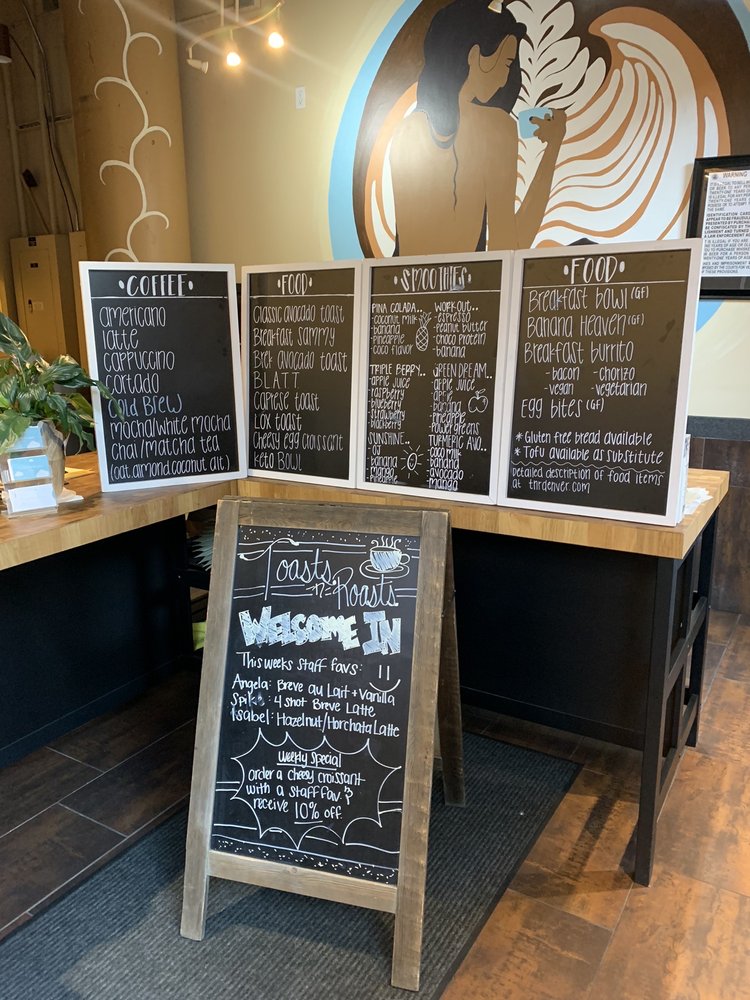 COFFEE
americano
latte
cappuccino
cortado
Cold Brew
mocha/white mocha
chai/matcha tea
(oat.almond.coconut alt)
FOOD
Classic avocado toast
Breakfast Sammy
Brek avocado toast
BLATT
Caprese toast
LOX toast
Cheesy egg croissant
keto Bowl
SMOOTHIES
PINA COLADA..
-coconut milk
-banana
-pineapple
-coco flavor
TRIPLE BERRY..
-apple juice
-raspberry
-blueberry
-strawberry
-blackberry
SUNSHINE..
-OJ
-banana
-mango
-pineapple
WORKOUT..
-espresso
-peanut butter
-choco protein
-banana
GREEN DREAM..
-apple juice
-apple
-banana
-pineapple
-power greens
TURMERIC AVO..
-coco milk
-banana
-avocado
-mango
FOOD
Breakfast bowl (GF)
Banana Heaven (GF)
Breakfast burrito
-bacon -chorizo
-vegan -vegetarian
Egg bites (GF)
* Gluten free bread available
* Tofu available as substitute
Detailed description of food items
at tnrdenver.com
WARNING
Toasts
-n-
Roasts
WELCOME IN
This weeks staff favs:
Angela: Breve au Lait + Vanilla
Spike: 4 shot Breve Latte
Isabel: Hazelnut/Horchata Latte
Weekly Special
order a cheesy croissant
with a staff fav &
receive 10% off.